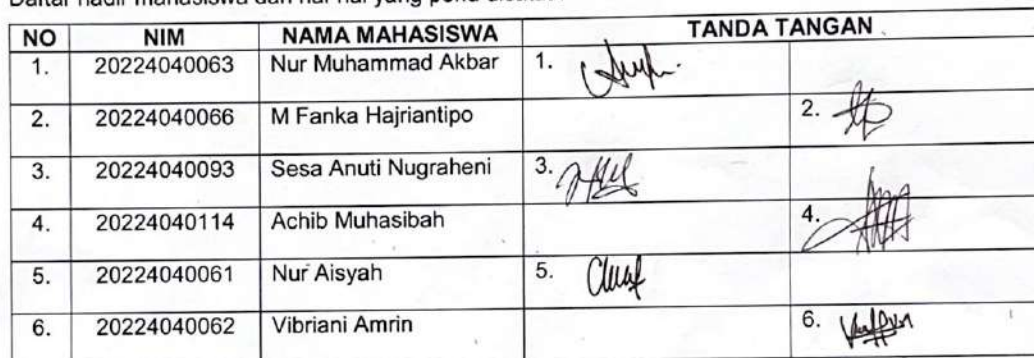 Daftar hadir mahasiswa dan hal-hal yang perlu
NO NIM NAMA MAHASISWA TANDA TANGAN
1. 20224040063 Nur Muhammad Akbar 1.
2. 20224040066 M Fanka Hajriantipo 2.
3. 20224040093 Sesa Anuti Nugraheni 3.
4. 20224040114 Achib Muhasibah 4.
5. 20224040061 Nur Aisyah 5.
6. 20224040062 Vibriani Amrin 6.